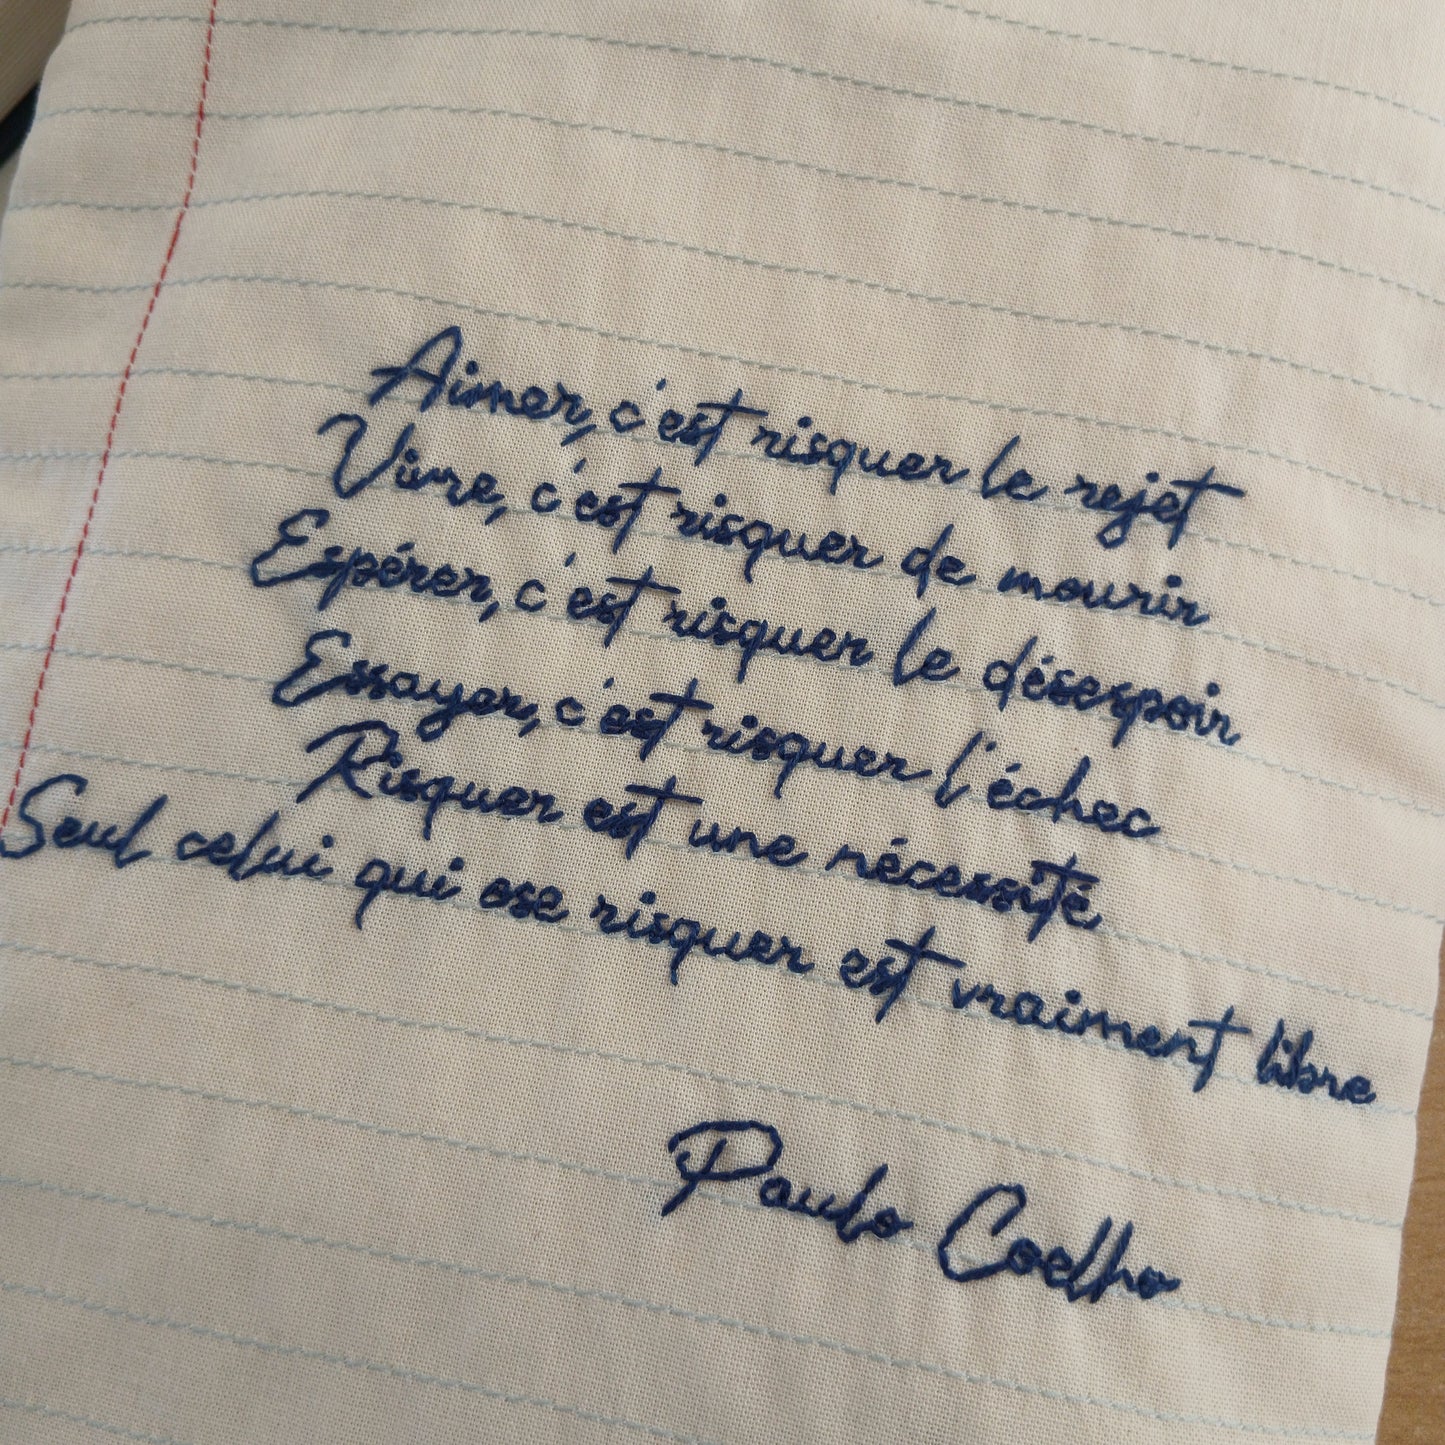 Aimer, c'est risquer le rejet
Vivre, c'est risquer de mourir
Espérer, c'est risquer le désespoir
Essayer, c'est risquer l'échec
Risquer est une nécessité
Seul celui qui ose risquer est vraiment libre
Paulo Coelho